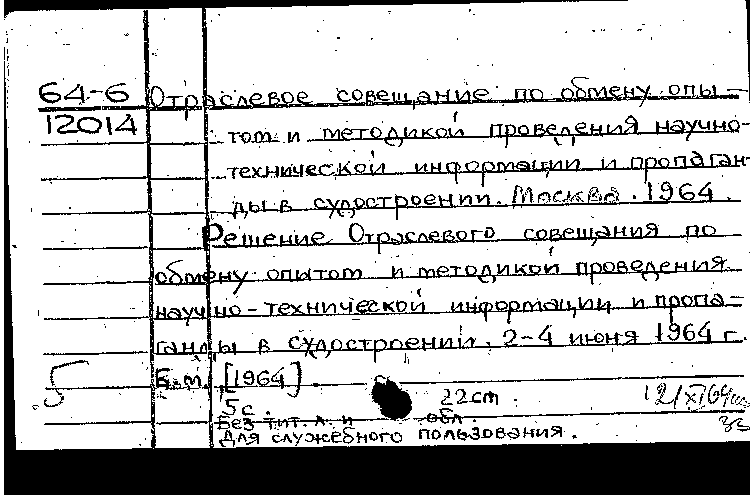 64-6 Отраслевое совещание по обмену опы-
12014 том и методикой проведения научно-
технической информации и пропаган-
ды в судостроении. Москва. 1964.
Решение Отраслевого совещания по
обмену опытом и методикой проведения
научно-технической информации и пропа-
ганды в судостроении. 2-4 июня 1964 г.
Б.м. [1964].
5
5 с. 22 cm.
Без тит. л. и обл.
Для служебного пользования.
33